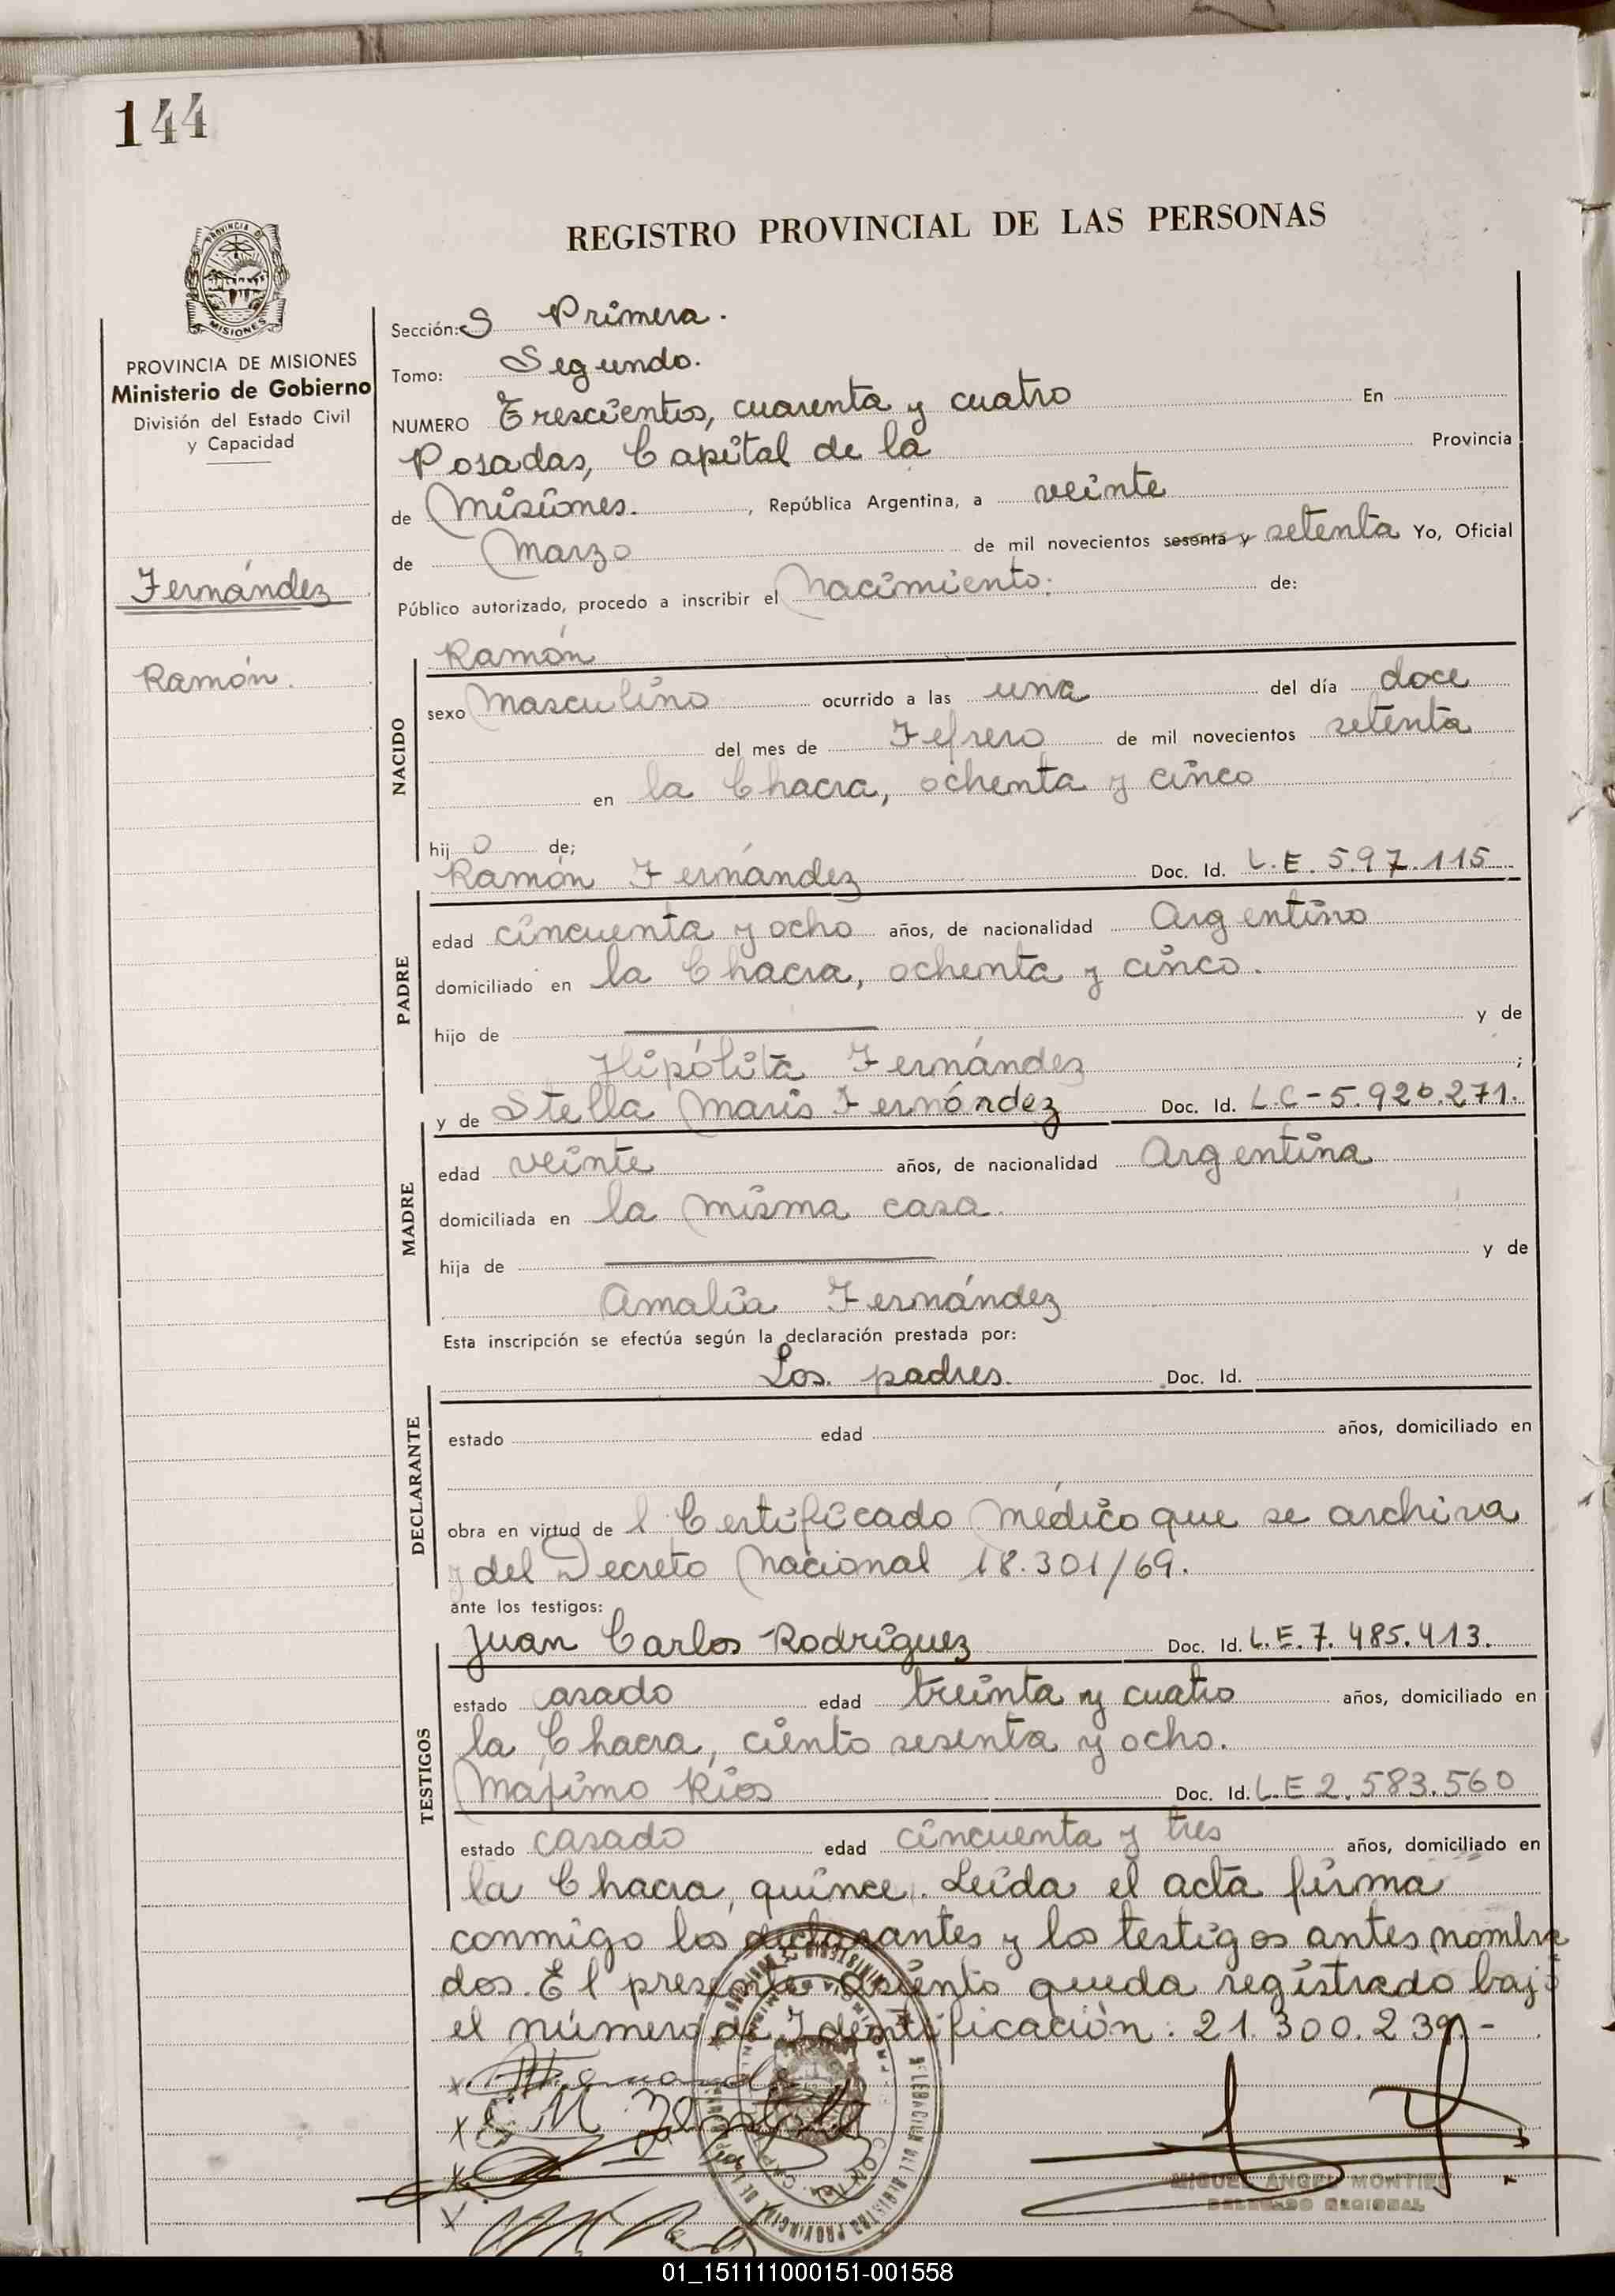 144
REGISTRO PROVINCIAL DE LAS PERSONAS
PROVINCIA DE MISIONES
Ministerio de Gobierno
División del Estado Civil
y Capacidad
Fernández
Ramón.
Sección: S Primera.
Tomo: Segundo.
NUMERO Trescientos, cuarenta y cuatro En
Posadas, Capital de la Provincia
de Misiones. , República Argentina, a veinte
de Marzo de mil novecientos sesenta y setenta Yo, Oficial
Público autorizado, procedo a inscribir el Nacimiento: de:
NACIDO
Ramón
sexo Masculino ocurrido a las una del día doce
del mes de Febrero de mil novecientos setenta
en la Chacra, ochenta y cinco
hij o de;
PADRE
Ramón Fernández Doc. Id. L.E. 597.115
edad cincuenta y ocho años, de nacionalidad Argentino
domiciliado en la Chacra, ochenta y cinco.
hijo de y de
Hipólita Fernández ;
MADRE
y de Stella Maris Fernández Doc. Id. L.C-5.920.271.
edad veinte años, de nacionalidad Argentina
domiciliada en la misma casa.
hija de y de
Amalia Fernández
Esta inscripción se efectúa según la declaración prestada por:
DECLARANTE
Los padres. Doc. Id.
estado edad años, domiciliado en
obra en virtud de l Certificado Médico que se archiva
y del Decreto Nacional 18.301/69.
ante los testigos:
TESTIGOS
Juan Carlos Rodríguez Doc. Id. L.E.7.485.413.
estado casado edad treinta y cuatro años, domiciliado en
la Chacra, ciento sesenta y ocho.
Máximo Ríos Doc. Id. L.E 2.583.560
estado casado edad cincuenta y tres años, domiciliado en
la Chacra, quince. Leída el acta firma
conmigo los declarantes y los testigos antes nombra
dos. El presente asiento queda registrado bajo
el número de Identificación: 21.300.239.-
MIGUEL ANGEL MONTIEL
DELEGADO REGIONAL
01_151111000151-001558